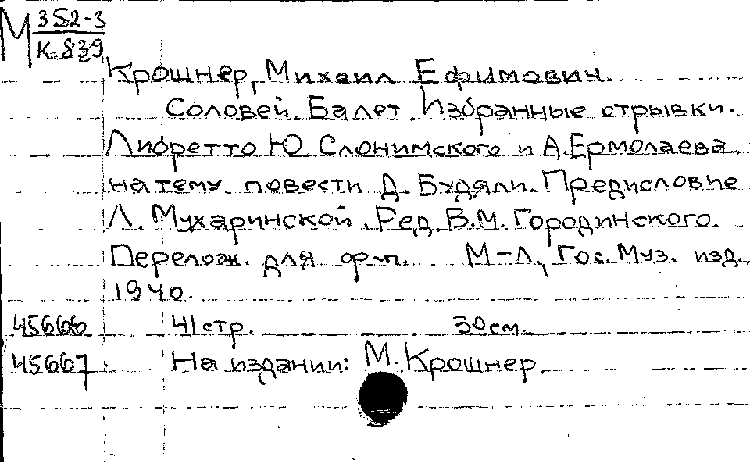 М 352-3
К.839
Крошнер, Михаил Ефимович.
Соловей. Балет. Избранные отрывки.
Либретто Ю Слонимского и А.Ермолаева
на тему повести Д. Бядули. Предисловие
Л. Мухаринской. Ред. В.М. Городинского.
Перелож. для фп. М-Л, Гос. Муз. изд.
1940.
45666 41 стр. 30 см.
45667 На издании: М. Крошнер.